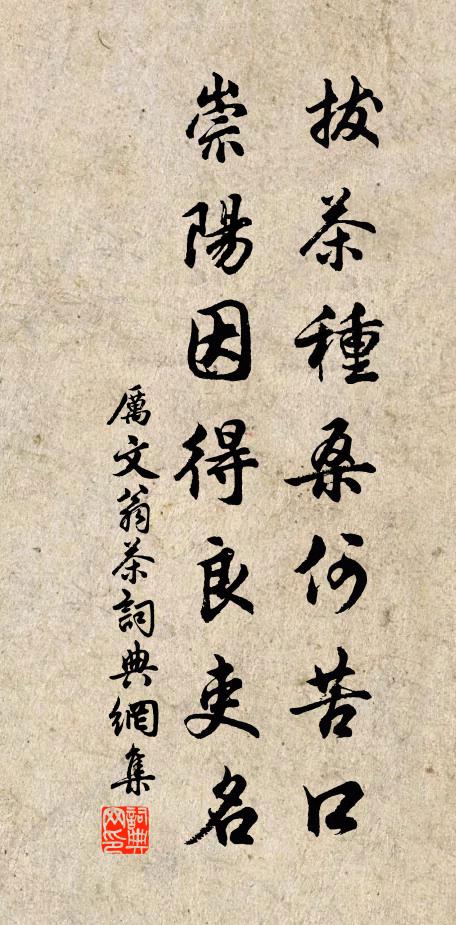 拔茶種桑何苦口
崇陽因得良吏名
厲文翁茶詞典網集
詞典網印